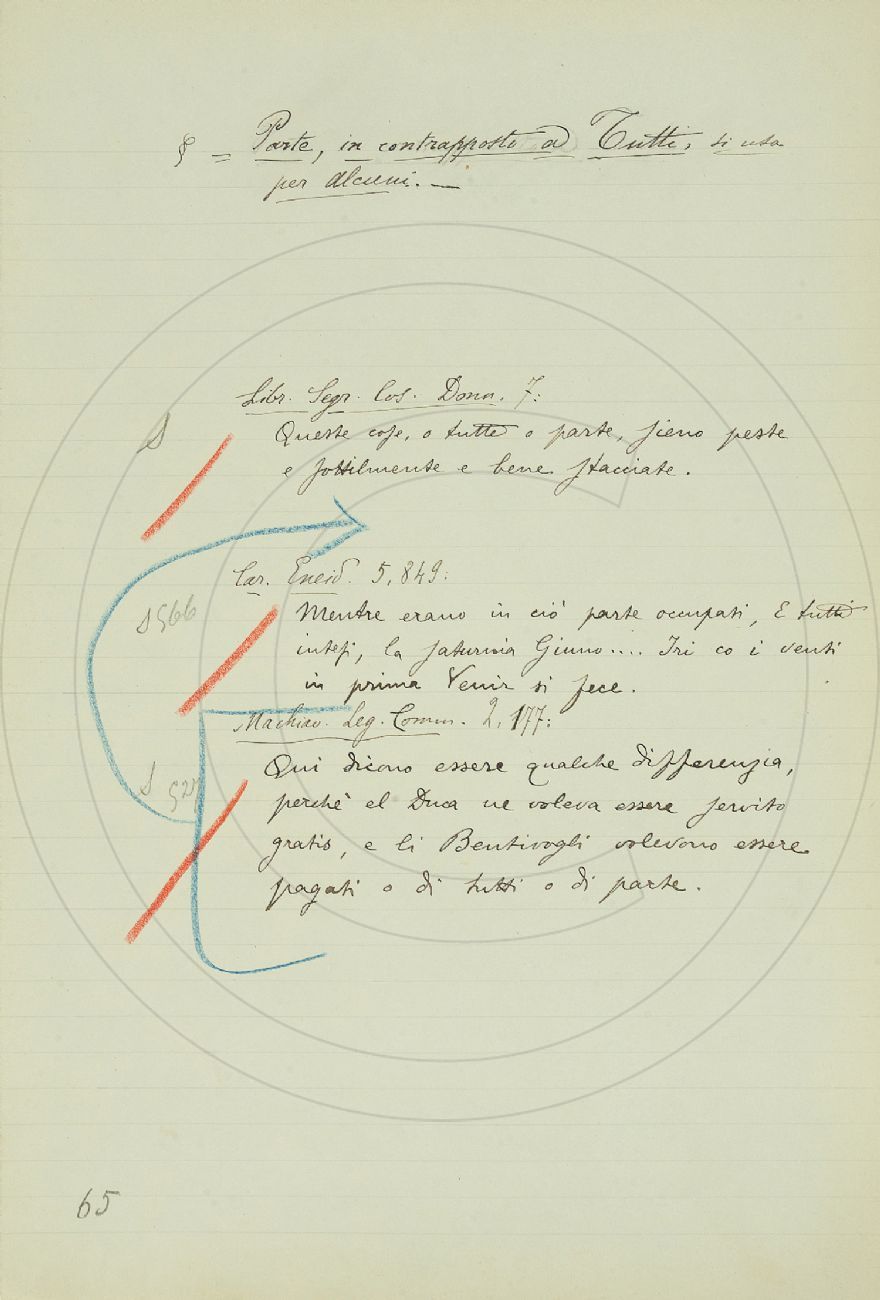 § = Parte, in contrapposto a Tutti, si usa
per alcuni. —
Libr. Segr. Cos. Donn. 7:
S
Queste cose, o tutte o parte, sieno peste
e sottilmente e bene stacciate.
Car. Eneid. 5, 849:
S 566
Mentre erano in ciò parte occupati, E tutti
intesi, la saturnia Giuno.... Iri co i venti
in prima Venir si fece.
Machiav. Leg. Comm. 2, 177:
S
Qui dicono essere qualche differenzia,
perchè el Duca ne voleva essere servito
gratis, e li Bentivogli volevono essere
pagati o di tutti o di parte.
65